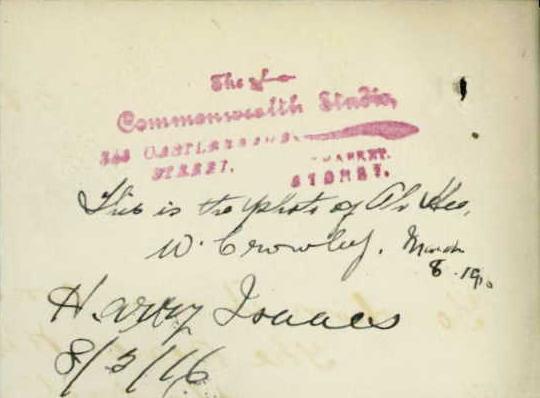 The
Commonwealth Studio,
CASTLEREAGH
STREET.
SYDNEY.
This is the photo of Ah Hee,
W. Crowley. March
8. 1916
Harry Isaacs
8/3/16